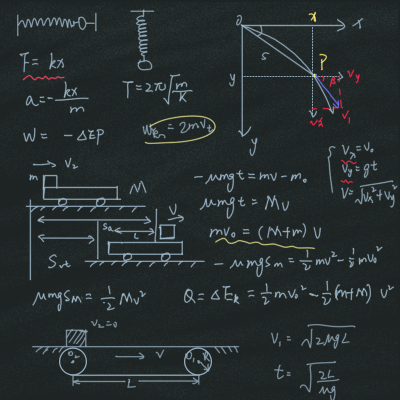 F = kx
a = - kx/m
W = -ΔEP
T = 2π√m/K
= 2mVt
O
x
X
S
P
y
β
Vy
V₁
y
Vx = V₀
Vy = gt
V = √Vx² + Vy²
V₂
m
M
V
L
-μmgt = mv - m₀
μmgt = MV
mv₀ = (M+m) V
-μmgSm = 1/2 mv² - 1/2 mv₀²
μmgSM = 1/2 Mv²
Q = ΔEk = 1/2 mv₀² - 1/2 (M+M) V²
V₂=0
V
L
V₁ = √2μgL
t = √2L/μg